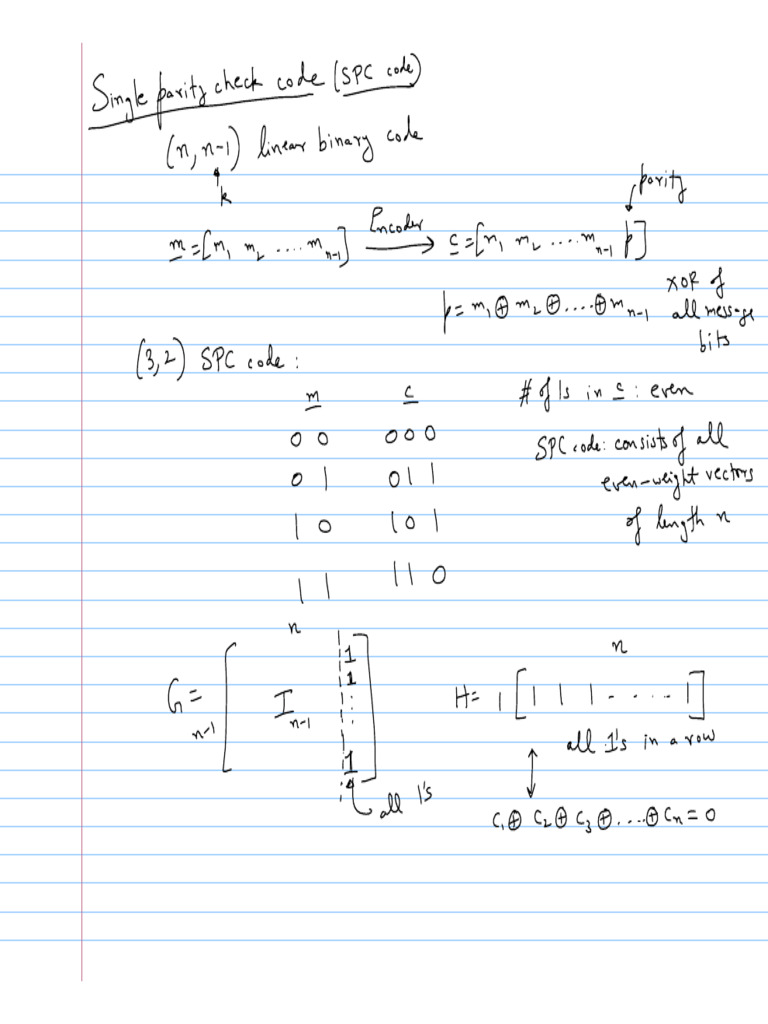 Single parity check code (SPC code)
(n, n-1) linear binary code
k
parity
m = [m₁ m₂ .... m_{n-1}] Encoder → c = [m₁ m₂ .... m_{n-1} p]
p = m₁ ⊕ m₂ ⊕ .... ⊕ m_{n-1} XOR of all message bits
(3,2) SPC code :
# of 1s in c : even
m c
0 0 0 0 0
0 1 0 1 1
1 0 1 0 1
1 1 1 1 0
SPC code: consists of all
even-weight vectors
of length n
n
G = n-1 [ I_{n-1} ¦ 1 1 : : 1 ]
all 1's
n
H = 1 [ 1 1 1 - . . . 1 ]
all 1's in a row
↕
c₁ ⊕ c₂ ⊕ c₃ ⊕ .... ⊕ cₙ = 0